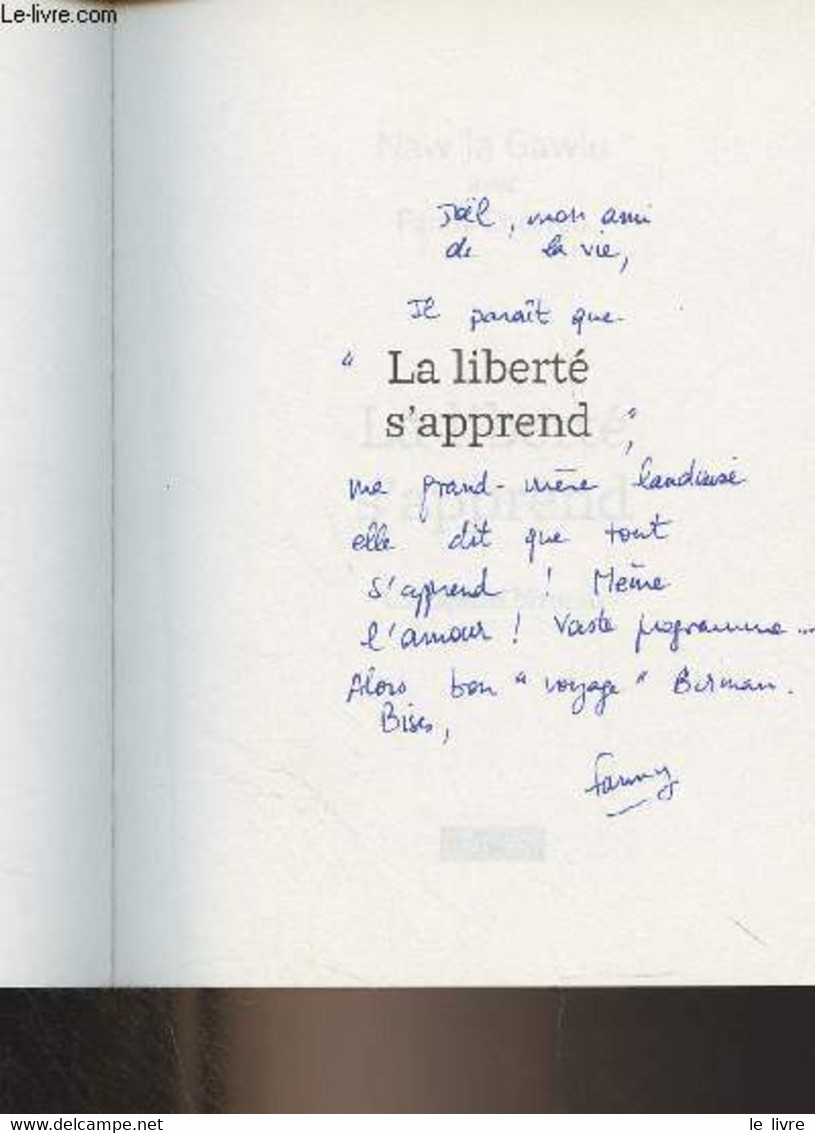 Le-livre.com
Joël, mon ami
de la vie,
Il paraît que
" La liberté
s'apprend ",
ma grand-mère landaise
elle dit que tout
s'apprend ! Même
l'amour ! Vaste programme...
Alors bon "voyage" Birman.
Bises,
Fanny
le livre